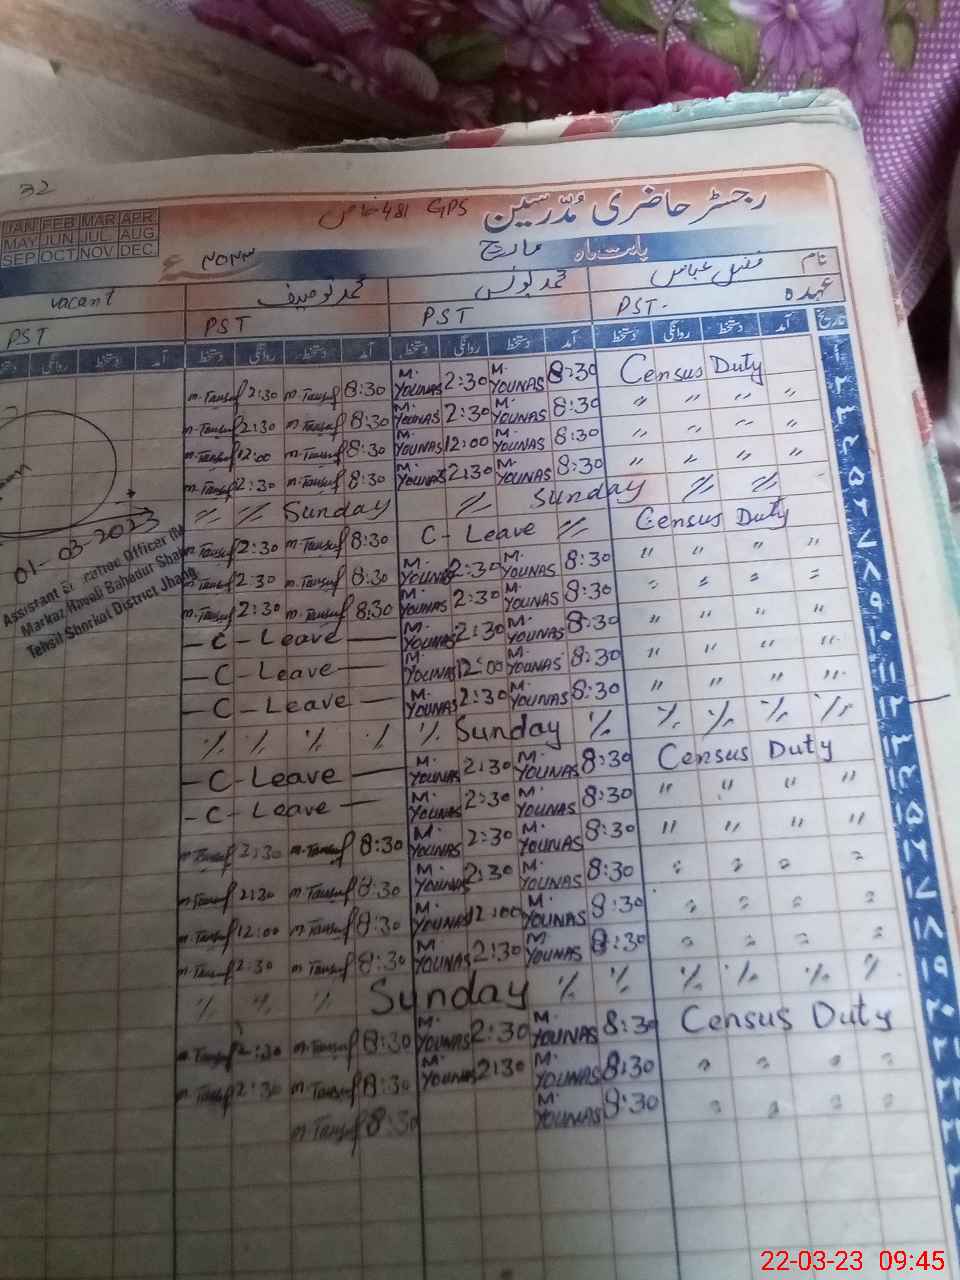 32
JAN FEB MAR APR
MAY JUN JUL AUG
SEP OCT NOV DEC
رجسٹر حاضری مدرسین GPS 481 خاص
بابت ماہ مارچ ۲۰۲۳ء
نام فضل عباس محمد یونس محمد توصیف vacant
عہدہ PST. PST PST PST
تاریخ آمد دستخط روانگی دستخط آمد دستخط روانگی دستخط آمد دستخط روانگی دستخط آمد دستخط روانگی دستخط
۱ m.Tausuf 2:30 m.Tausuf 8:30 M. YOUNAS 2:30 M. YOUNAS 8:30 Census Duty
۲ m.Tausuf 2:30 m.Tausuf 8:30 M. YOUNAS 2:30 M. YOUNAS 8:30 " " " "
۳ m.Tausuf 12:00 m.Tausuf 8:30 M. YOUNAS 12:00 M. YOUNAS 8:30 " " " "
۴ m.Tausuf 2:30 m.Tausuf 8:30 M. YOUNAS 2:30 M. YOUNAS 8:30 " " " "
۵ " " Sunday " Sunday " "
۶ m.Tausuf 2:30 m.Tausuf 8:30 C - Leave " Census Duty
۷ m.Tausuf 2:30 m.Tausuf 8:30 M. YOUNAS 2:30 M. YOUNAS 8:30 " " " "
۸ m.Tausuf 2:30 m.Tausuf 8:30 M. YOUNAS 2:30 M. YOUNAS 8:30 " " " "
۹ - C - Leave — M. YOUNAS 2:30 M. YOUNAS 8:30 " " " "
۱۰ - C - Leave — M. YOUNAS 12:00 M. YOUNAS 8:30 " " " "
۱۱ - C - Leave — M. YOUNAS 2:30 M. YOUNAS 8:30 " " " "
۱۲ " " " " " Sunday " " " " "
۱۳ - C - Leave — M. YOUNAS 2:30 M. YOUNAS 8:30 Census Duty
۱۴ - C - Leave — M. YOUNAS 2:30 M. YOUNAS 8:30 " " " "
۱۵ m.Tausuf 2:30 m.Tausuf 8:30 M. YOUNAS 2:30 M. YOUNAS 8:30 " " " "
۱۶ m.Tausuf 2:30 m.Tausuf 8:30 M. YOUNAS 2:30 M. YOUNAS 8:30 " " " "
۱۷ m.Tausuf 12:00 m.Tausuf 8:30 M. YOUNAS 12:00 M. YOUNAS 8:30 " " " "
۱۸ m.Tausuf 2:30 m.Tausuf 8:30 M. YOUNAS 2:30 M. YOUNAS 8:30 " " " "
۱۹ " " " Sunday " " " " " "
۲۰ m.Tausuf 2:30 m.Tausuf 8:30 M. YOUNAS 2:30 M. YOUNAS 8:30 Census Duty
۲۱ m.Tausuf 2:30 m.Tausuf 8:30 M. YOUNAS 2:30 M. YOUNAS 8:30 " " " "
۲۲ m.Tausuf 8:30 M. YOUNAS 8:30 " " " "
01-03-2023
Assistant Officer (M
Markaz Haveli Bahadur Shah
Tehsil Shorkot District Jhang
22-03-23 09:45